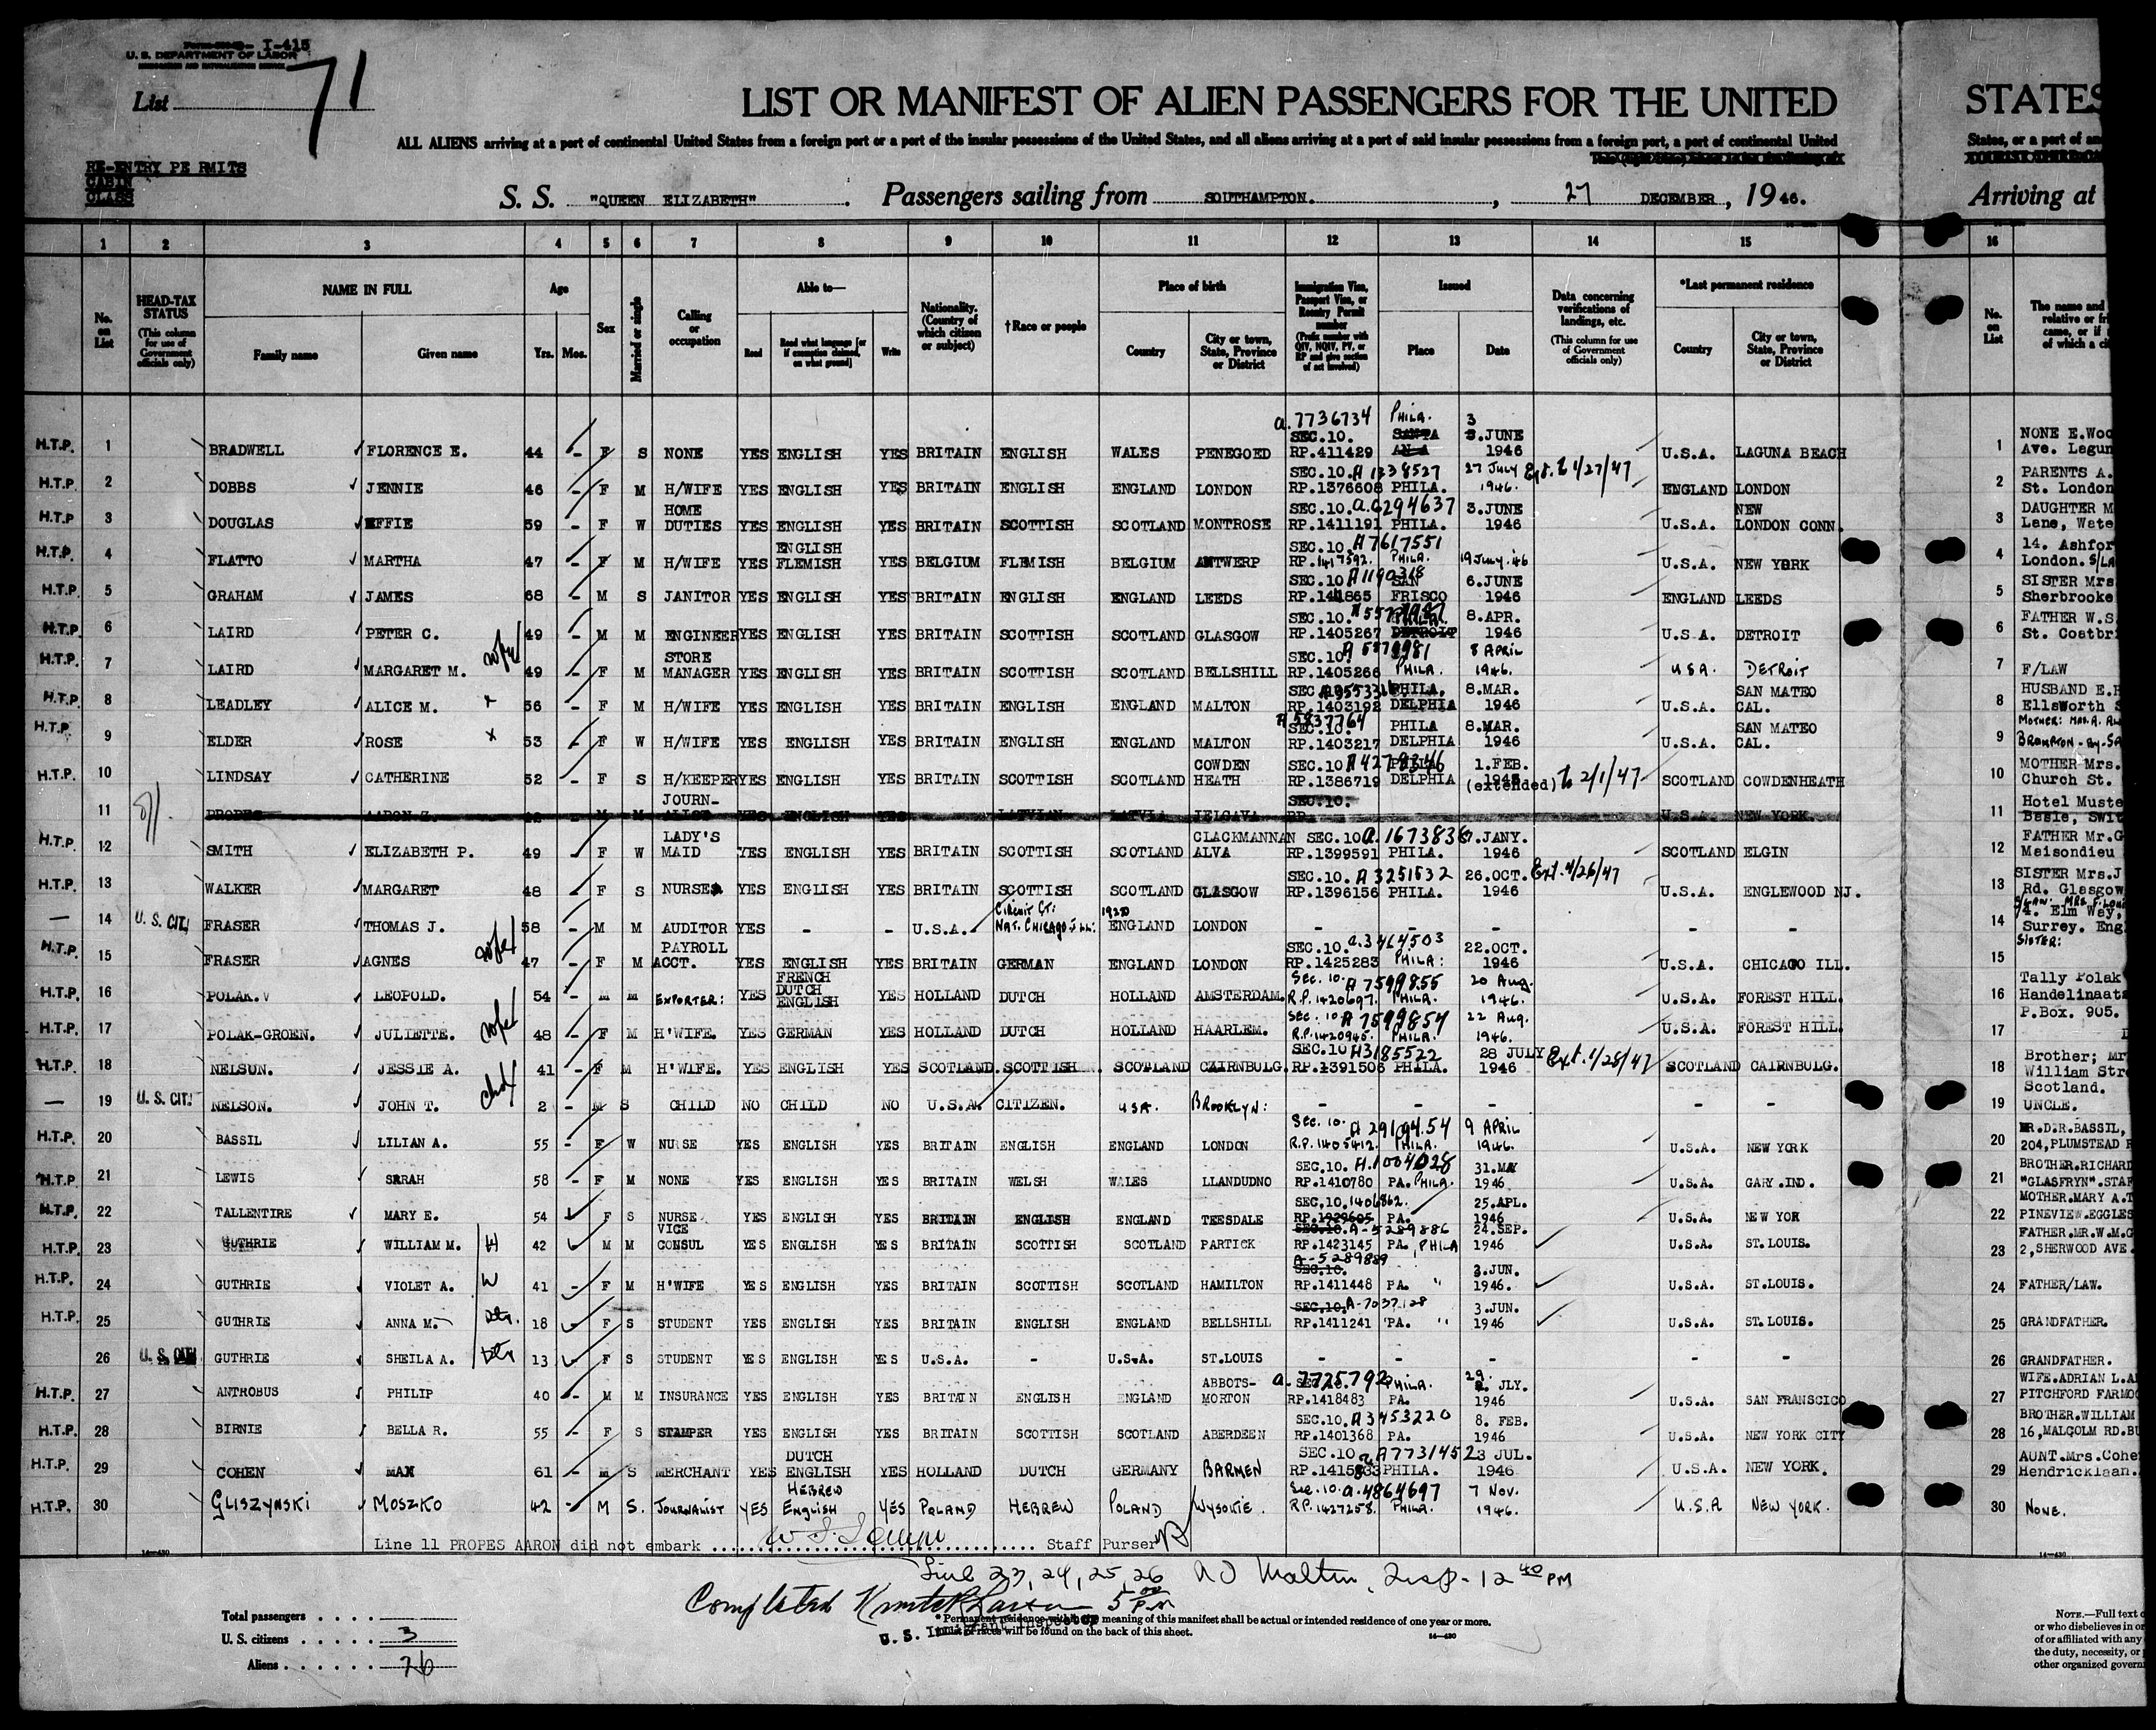 I-415
U. S. DEPARTMENT OF LABOR
List 71
LIST OR MANIFEST OF ALIEN PASSENGERS FOR THE UNITED STATES
ALL ALIENS arriving at a port of continental United States from a foreign port or a port of the insular possessions of the United States, and all aliens arriving at a port of said insular possessions from a foreign port, a port of continental United States, or a port of an
RE-ENTRY PERMITS
CABIN
CLASS
S. S. "QUEEN ELIZABETH". Passengers sailing from SOUTHAMPTON., 27 DECEMBER, 1946. Arriving at
1 2 3 4 5 6 7 8 9 10 11 12 13 14 15 16
No. on List
HEAD-TAX STATUS (This column for use of Government officials only)
NAME IN FULL Family name Given name
Age Yrs. Mos.
Sex
Married or single
Calling or occupation
Able to— Read Read what language [or if exemption claimed, on what ground] Write
Nationality. (Country of which citizen or subject)
†Race or people
Place of birth Country City or town, State, Province or District
Immigration Visa, Passport Visa, or Reentry Permit number (Prefix number with QIV, NQIV, PV, or RP and give section of act involved)
Issued Place Date
Data concerning verifications of landings, etc. (This column for use of Government officials only)
*Last permanent residence Country City or town, State, Province or District
No. on List
The name and
relative or fri
came, or if
of which a ci
H.T.P. 1 BRADWELL FLORENCE E. 44 - F S NONE YES ENGLISH YES BRITAIN ENGLISH WALES PENEGOED a.7736734 SEC.10. RP.411429 PHILA. SANTA ANA 3 3.JUNE 1946 U.S.A. LAGUNA BEACH 1 NONE E.Woo Ave. Lagun
H.T.P. 2 DOBBS JENNIE 46 - F M H/WIFE YES ENGLISH YES BRITAIN ENGLISH ENGLAND LONDON SEC.10. A 1338527 RP.1376608 PHILA. 27 July 1946. Ext. to 1/27/47 ENGLAND LONDON 2 PARENTS A. St. London
H.T.P 3 DOUGLAS EFFIE 59 - F W HOME DUTIES YES ENGLISH YES BRITAIN SCOTTISH SCOTLAND MONTROSE SEC.10. a.6294637 RP.1411191 PHILA. 3.JUNE 1946 U.S.A. NEW LONDON CONN. 3 DAUGHTER M Lane, Wate
H.T.P. 4 FLATTO MARTHA 47 - F M H/WIFE YES ENGLISH FLEMISH YES BELGIUM FLEMISH BELGIUM ANTWERP SEC.10. A7617551 RP.1417592. PHILA. 19 July.46 U.S.A. NEW YORK 4 14. Ashfor London. S/LA
H.T.P. 5 GRAHAM JAMES 68 - M S JANITOR YES ENGLISH YES BRITAIN ENGLISH ENGLAND LEEDS SEC.10 A1190318 SAN FRISCO 6.JUNE 1946 ENGLAND LEEDS 5 SISTER Mrs Sherbrooke
H.T.P. 6 LAIRD PETER C. 49 - M M ENGINEER YES ENGLISH YES BRITAIN SCOTTISH SCOTLAND GLASGOW SEC.10. RP.1405267 PHILA. DETROIT 8.APR. 1946 U.S.A. DETROIT 6 FATHER W.S St. Coatbri
H.T.P. 7 LAIRD MARGARET M. wife 49 - F M STORE MANAGER YES ENGLISH YES BRITAIN SCOTTISH SCOTLAND BELLSHILL SEC.10. RP.1405266 PHILA. 8 APRIL 1946. USA. DETROIT 7 F/LAW
H.T.P. 8 LEADLEY ALICE M. x 56 - F M H/WIFE YES ENGLISH YES BRITAIN ENGLISH ENGLAND MALTON SEC RP.1403192 PHILA. DELPHIA 8.MAR. 1946 U.S.A. SAN MATEO CAL. 8 HUSBAND E.H Ellsworth S
H.T.P. 9 ELDER ROSE x 53 - F W H/WIFE YES ENGLISH YES BRITAIN ENGLISH ENGLAND MALTON A 5837764 SEC.10. RP.1403217 PHILA DELPHIA 8.MAR. 1946 U.S.A. SAN MATEO CAL. 9 MOTHER: MRS. A. BROMPTON-BY-SA
H.T.P. 10 LINDSAY CATHERINE 52 - F S H/KEEPER YES ENGLISH YES BRITAIN SCOTTISH SCOTLAND COWDEN HEATH SEC.10 A4278346 RP.1386719 PHILA DELPHIA 1.FEB. 1945 (extended) to 2/1/47 SCOTLAND COWDENHEATH 10 MOTHER Mrs. Church St.
11 PROPES AARON Z. M M JOURN-ALIST YES ENGLISH YES LATVIAN LATVIA JELGAVA SEC.10. RP. U.S.A. NEW YORK. 11 Hotel Muste Basle, Swit
H.T.P. 12 SMITH ELIZABETH P. 49 - F W LADY'S MAID YES ENGLISH YES BRITAIN SCOTTISH SCOTLAND CLACKMANNAN ALVA SEC.10 a.1673836 RP.1399591 PHILA. 7.JANY. 1946 SCOTLAND ELGIN 12 FATHER Mr.G Maisondieu
H.T.P. 13 WALKER MARGARET 48 - F S NURSE YES ENGLISH YES BRITAIN SCOTTISH SCOTLAND GLASGOW SEC.10. A3251532 RP.1396156 PHILA. 26.OCT. 1946 Ext. 4/26/47 U.S.A. ENGLEWOOD NJ. 13 SISTER Mrs.J Rd. Glasgow
— 14 U. S. CIT. FRASER THOMAS J. 58 - M M AUDITOR YES - - U.S.A. Circuit Ct: 1920 NAT. CHICAGO ILL: ENGLAND LONDON - - - - - 14 74. Elm Way, Surrey. Eng
H.T.P. 15 FRASER AGNES wife 47 - F M PAYROLL ACCT. YES ENGLISH YES BRITAIN GERMAN ENGLAND LONDON SEC.10. a.3464503 RP.1425283 PHILA: 22.OCT. 1946 U.S.A. CHICAGO ILL. 15 SISTER:
H.T.P. 16 POLAK.V LEOPOLD. 54 - M M EXPORTER: YES FRENCH DUTCH ENGLISH YES HOLLAND DUTCH HOLLAND AMSTERDAM. Sec. 10. A7599855 R.P.1420697. PHILA. 20 Aug. 1946. U.S.A. FOREST HILL. 16 Tally Polak Handelinaats P.Box. 905.
H.T.P. 17 POLAK-GROEN. JULIETTE. wife 48 - F M H'WIFE. YES GERMAN YES HOLLAND DUTCH HOLLAND HAARLEM. Sec. 10 A7599854 R.P.1420945. PHILA. 22 Aug. 1946. U.S.A. FOREST HILL. 17
H.T.P. 18 NELSON. JESSIE A. 41 - F M H'WIFE. YES ENGLISH YES SCOTLAND. SCOTTISH. SCOTLAND CAIRNBULG. SEC.10 A3185522 RP.1391506 PHILA. 28 JULY 1946 Ext. 1/28/47 SCOTLAND CAIRNBULG. 18 Brother; Mr William Stre Scotland.
— 19 U. S. CIT. NELSON. JOHN T. child 2 - M S CHILD NO CHILD NO U.S.A. CITIZEN. USA. BROOKLYN: - - - - - 19 UNCLE.
H.T.P. 20 BASSIL LILIAN A. 55 - F W NURSE YES ENGLISH YES BRITAIN ENGLISH ENGLAND LONDON Sec. 10. R.P.1405412. PHILA. 9 APRIL 1946. U.S.A. NEW YORK 20 MR.D.R.BASSIL, 204,PLUMSTEAD
H.T.P. 21 LEWIS SARAH 58 - F M NONE YES ENGLISH YES BRITAIN WELSH WALES LLANDUDNO SEC.10. A.1004028 RP.1410780 PA. PHILA. 31.MAY 1946 U.S.A. GARY.IND. 21 BROTHER.RICHARD "GLASFRYN".STAF
H.T.P. 22 TALLENTIRE MARY E. 54 F S NURSE YES ENGLISH YES BRITAIN ENGLISH ENGLAND TEESDALE SEC.10.1406862. RP.1929605 PA. 25.APL. 1946 U.S.A. NEW YOR 22 MOTHER.MARY A.T PINEVIEW.EGGLES
H.T.P. 23 GUTHRIE WILLIAM M. H 42 M M VICE CONSUL YES ENGLISH YES BRITAIN SCOTTISH SCOTLAND PARTICK SEC.10. A-5289886 RP.1423145 PA. PHILA 24.SEP. 1946 U.S.A. ST.LOUIS. 23 FATHER.MR.W.M.G 2,SHERWOOD AVE.
H.T.P. 24 GUTHRIE VIOLET A. W 41 - F M H'WIFE YES ENGLISH YES BRITAIN SCOTTISH SCOTLAND HAMILTON A-5289889 SEC.10. RP.1411448 PA. " 3.JUN. 1946. U.S.A. ST.LOUIS. 24 FATHER/LAW.
H.T.P. 25 GUTHRIE ANNA M. Dtr. 18 F S STUDENT YES ENGLISH YES BRITAIN ENGLISH ENGLAND BELLSHILL SEC.10. A-7037128 RP.1411241 PA. " 3.JUN. 1946 U.S.A. ST.LOUIS. 25 GRANDFATHER.
26 U. S. GUTHRIE SHEILA A. Dtr 13 F S STUDENT YES ENGLISH YES U.S.A. - U.S.A. ST.LOUIS - - - - - 26 GRANDFATHER.
H.T.P. 27 ANTROBUS PHILIP 40 - M M INSURANCE YES ENGLISH YES BRITAIN ENGLISH ENGLAND ABBOTS-MORTON a.7725792 RP.1418483 PHILA. PA. 29. JLY. 1946 U.S.A. SAN FRANSCICO 27 WIFE.ADRIAN L.A PITCHFORD FARMOO
H.T.P. 28 BIRNIE BELLA R. 55 - F S STAMPER YES ENGLISH YES BRITAIN SCOTTISH SCOTLAND ABERDEEN SEC.10. A3453220 RP.1401368 PA. 8. FEB. 1946 U.S.A. NEW YORK CITY 28 BROTHER.WILLIAM 16,MALCOLM RD.BU
H.T.P. 29 COHEN MAX 61 - M S MERCHANT YES DUTCH ENGLISH HEBREW YES HOLLAND DUTCH GERMANY BARMEN SEC.10 A7731452 PHILA. 23 JUL. 1946 U.S.A. NEW YORK. 29 AUNT.Mrs.Cohe Hendricklaan.
H.T.P. 30 GLISZYNSKI MOSZKO 42 - M S. JOURNALIST YES English YES POLAND HEBREW POLAND WYSOKIE. Sec. 10. a.4864697 R.P.1427258. PHILA. 7 Nov. 1946. U.S.A NEW YORK. 30 NONE.
Line 11 PROPES AARON did not embark Staff Purser
Line 23, 24, 25, 26 Insp - 12 40 PM
Completed 5 00 P.M
* Permanent residence within the meaning of this manifest shall be actual or intended residence of one year or more.
† List of races will be found on the back of this sheet.
U. S. Immigrant Inspector
Total passengers
U. S. citizens 3
Aliens 26
NOTE.—Full text o
or who disbelieves in or
of or affiliated with any
the duty, necessity, or
other organized govern